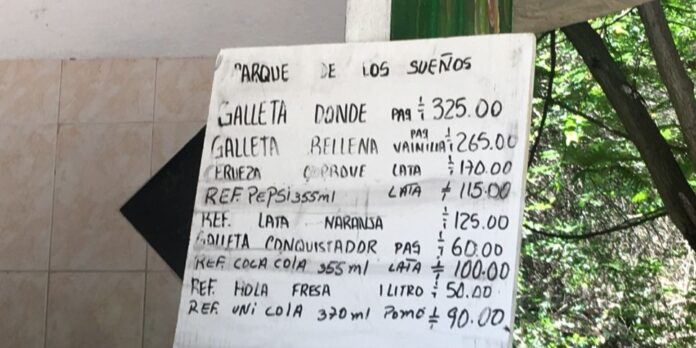 PARQUE DE LOS SUEÑOS
GALLETA DONDE PAQ 1/1 325.00
GALLETA RELLENA VAINILLA PAQ 1/1 265.00
CERVEZA LATA 1/1 170.00
REF. PEPSI 355ml LATA 1/1 115.00
REF. LATA NARANJA 1/1 125.00
GALLETA CONQUISTADOR PAQ 1/1 60.00
REF COCA COLA 355ml LATA 1/1 100.00
REF. HOLA FRESA 1 LITRO 1/1 50.00
REF. UNI COLA 370ml POMO 1/1 90.00